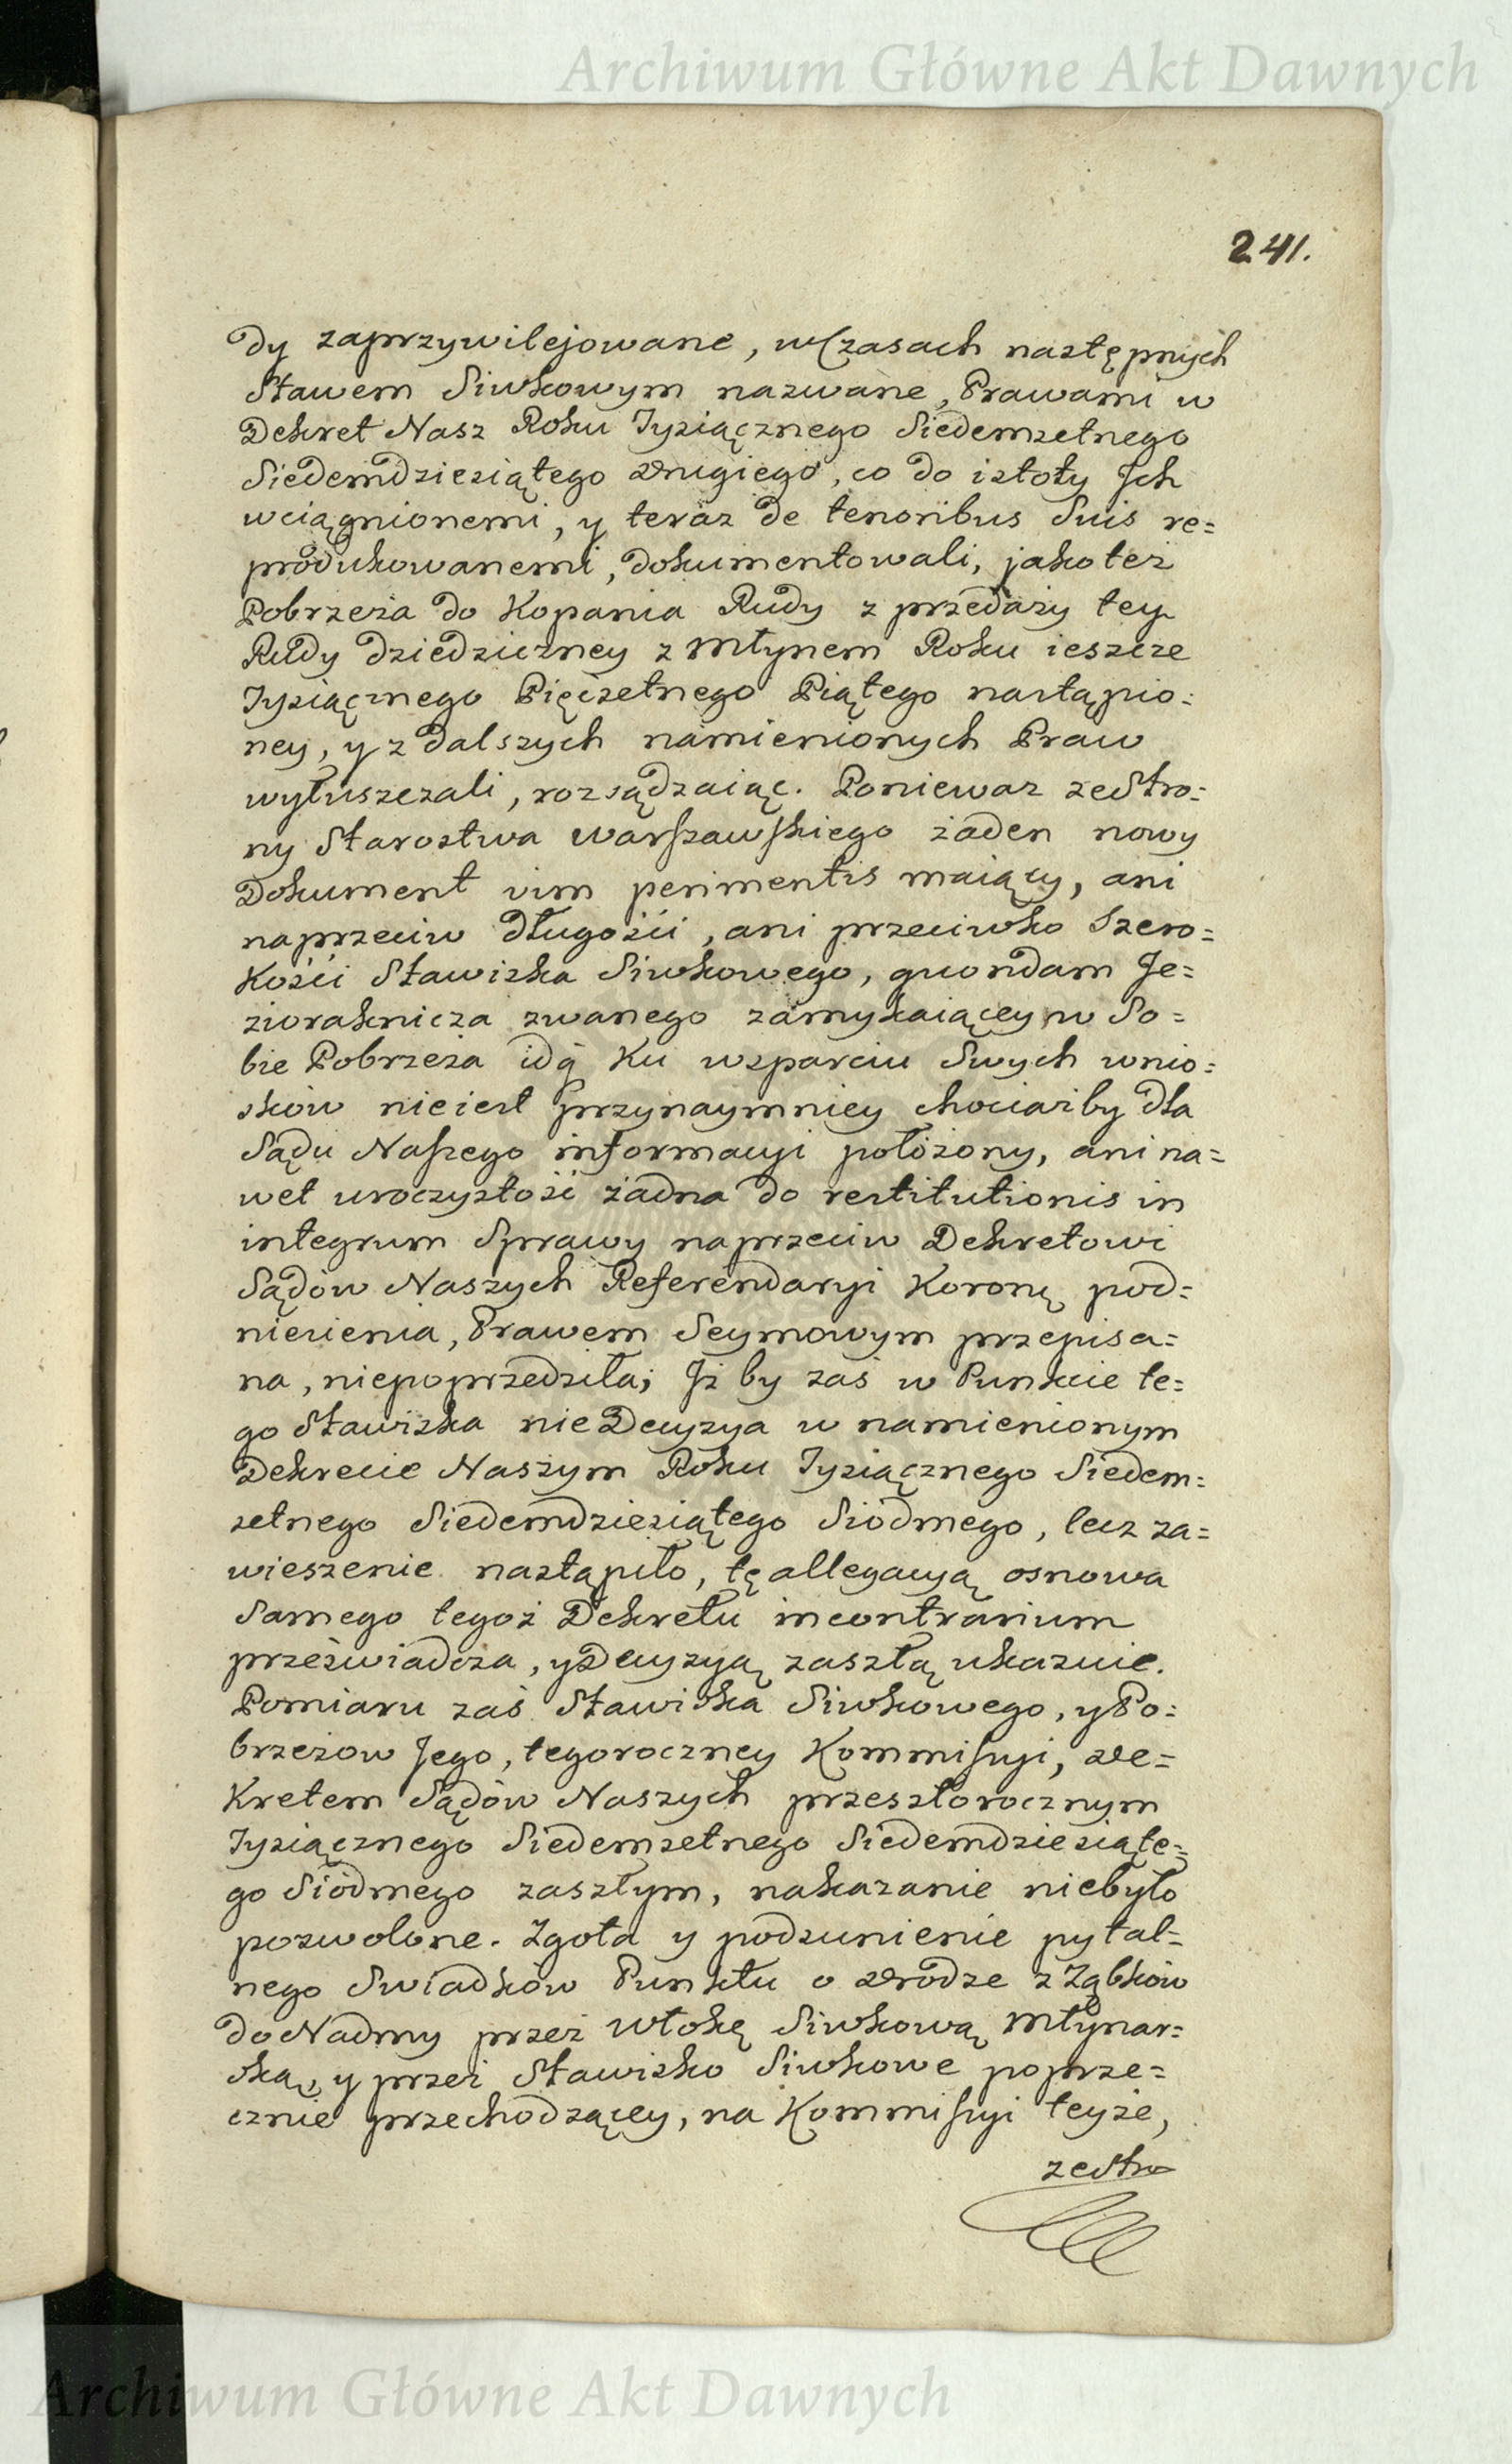 Archiwum Główne Akt Dawnych
241.
dy zaprzywilejowane, w Czasach następnych
Stawem Siwkowym nazwane, Prawami w
Dekret Nasz Roku Tysiącznego Siedemsetnego
Siedemdziesiątego drugiego, co do istoty Jch
wciągnionemi, y teraz de tenoribus Suis re=
produkowanemi, dokumentowali, jako też
Pobrzeża do Kopania Rudy z przedaży tey
Rudy dziedziczney z Młynem Roku ieszcze
Tysiącznego Pięćsetnego Piątego nastąpio=
ney, y z dalszych namienionych Praw
wyłuszczali, rozsądzaiąc. Ponieważ ze Stro=
ny Starostwa Warszawskiego żaden nowy
Dokument vim perimentis maiący, ani
naprzeciw długości, ani przeciwko Szero=
kości Stawiska Siwkowego, quondam Je=
zioraknicza zwanego zamykaiącey w So=
bie Pobrzeża idą Ku wsparciu Swych wnio=
sków nieiest przynaymniey chociażby dla
Sądu Naszego informacyi położony, ani na=
wet uroczystość żadna do restitutionis in
integrum Sprawy naprzeciw Dekretowi
Sądów Naszych Referendaryi Koronę pod=
niesienia, Prawem Seymowym przepisa=
na, niepoprzedziła; Jż by zaś w Punkcie te=
go Stawiska nie Decyzya w namienionym
Dekrecie Naszym Roku Tysiącznego Siedem=
setnego Siedemdziesiątego Siódmego, lecz za=
wieszenie nastąpiło, tę allegacyą osnowa
Samego tegoż Dekretu in contrarium
przeświadcza, y Decyzyą zaszłą ukazuie.
Pomiaru zaś Stawiska Siwkowego, y Po=
brzeżow Jego, tegoroczney Kommissyi, de=
Kretem Sądów Naszych przeszłorocznym
Tysiącznego Siedemsetnego Siedemdziesiąte=
go Siódmego zaszłym, nakazanie niebyło
pozwolone. Zgoła y podsunienie pytal=
nego Swiadków Punktu o drodze z Ząbków
do Nadmy przez Włokę Siwkową Młynar=
ską, y przez Stawisko Siwkowe poprze=
cznie przechodzącey, na Kommissyi teyże,
ze Stro
Archiwum Główne Akt Dawnych